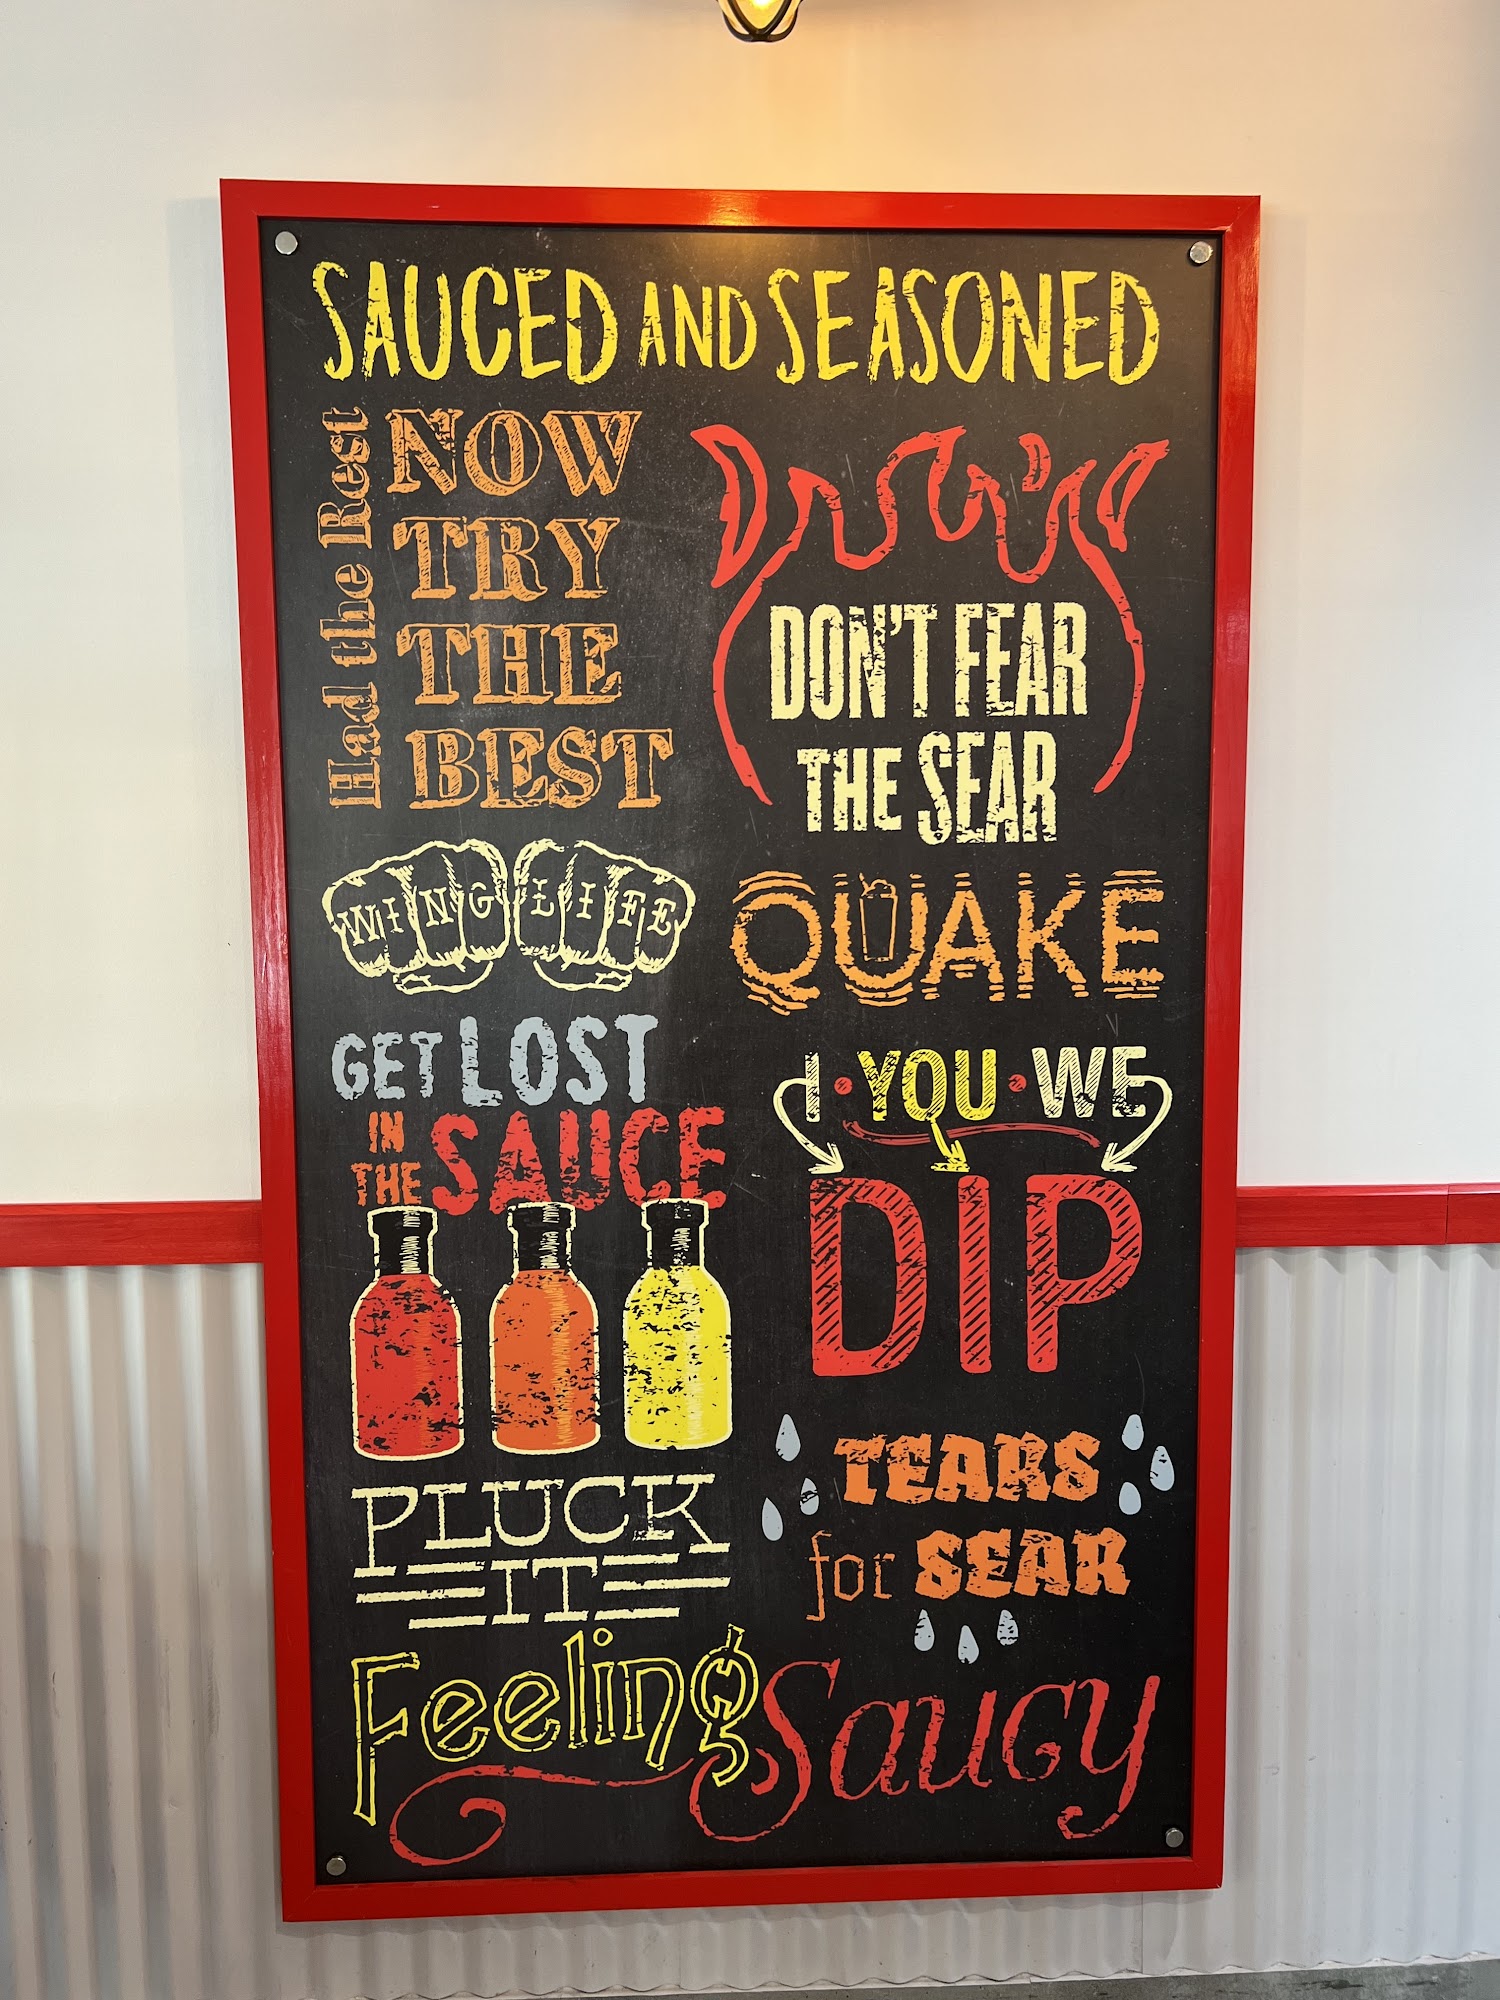 SAUCED AND SEASONED
Had the Rest
NOW
TRY
THE
BEST
DON'T FEAR
THE SEAR
WING LIFE
QUAKE
GET LOST
IN
THE SAUCE
I • YOU • WE
DIP
PLUCK
IT
TEARS
for SEAR
Feeling Saucy